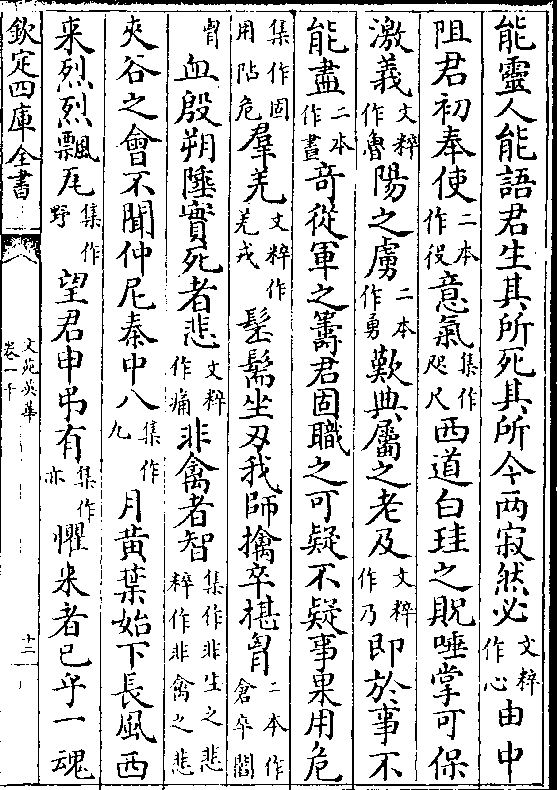 能靈人能語君生其所死其所今兩寂然必文粹作心由中
阻君初奉使二本作役意氣集作咫尺西道白珪之貺唾掌可保
激義文粹作魯陽之虜二本作勇歎典屬之老及文粹作乃即於事不
能盡二本作晝竒從軍之籌君固職之可疑不疑事果用危
集作固用阽危羣羌文粹作羌戎髽髯坐刃我師擒卒揕胷二本作倉卒闔
胷血殷朔陲實死者悲文粹作痛非禽者智集作非生之悲粹作非禽之悲
夾谷之會不聞仲尼秦中八集作九月黄葉始下長風西
来烈烈飄瓦集作野望君申弔有集作亦懼来者已乎一魂
欽定四庫全書
文苑英華
卷一千
十二